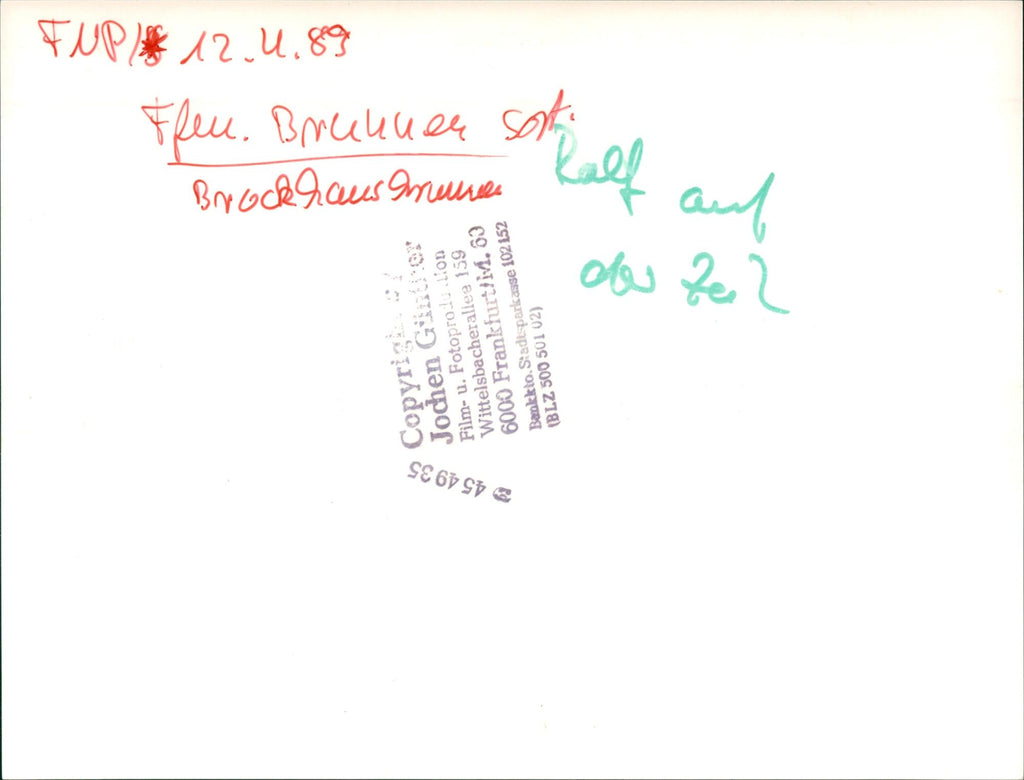 FNP/ 12. 4. 89
Ffm. Brunnen sort.
Brockhausbrunnen
Ralf auf
der Zeil
Copyright by
Jochen Günther
Film- u. Fotoproduktion
Wittelsbacherallee 159
6000 Frankfurt/M. 60
Bankkto. Stadtsparkasse 102152
(BLZ 500 501 02)
454935